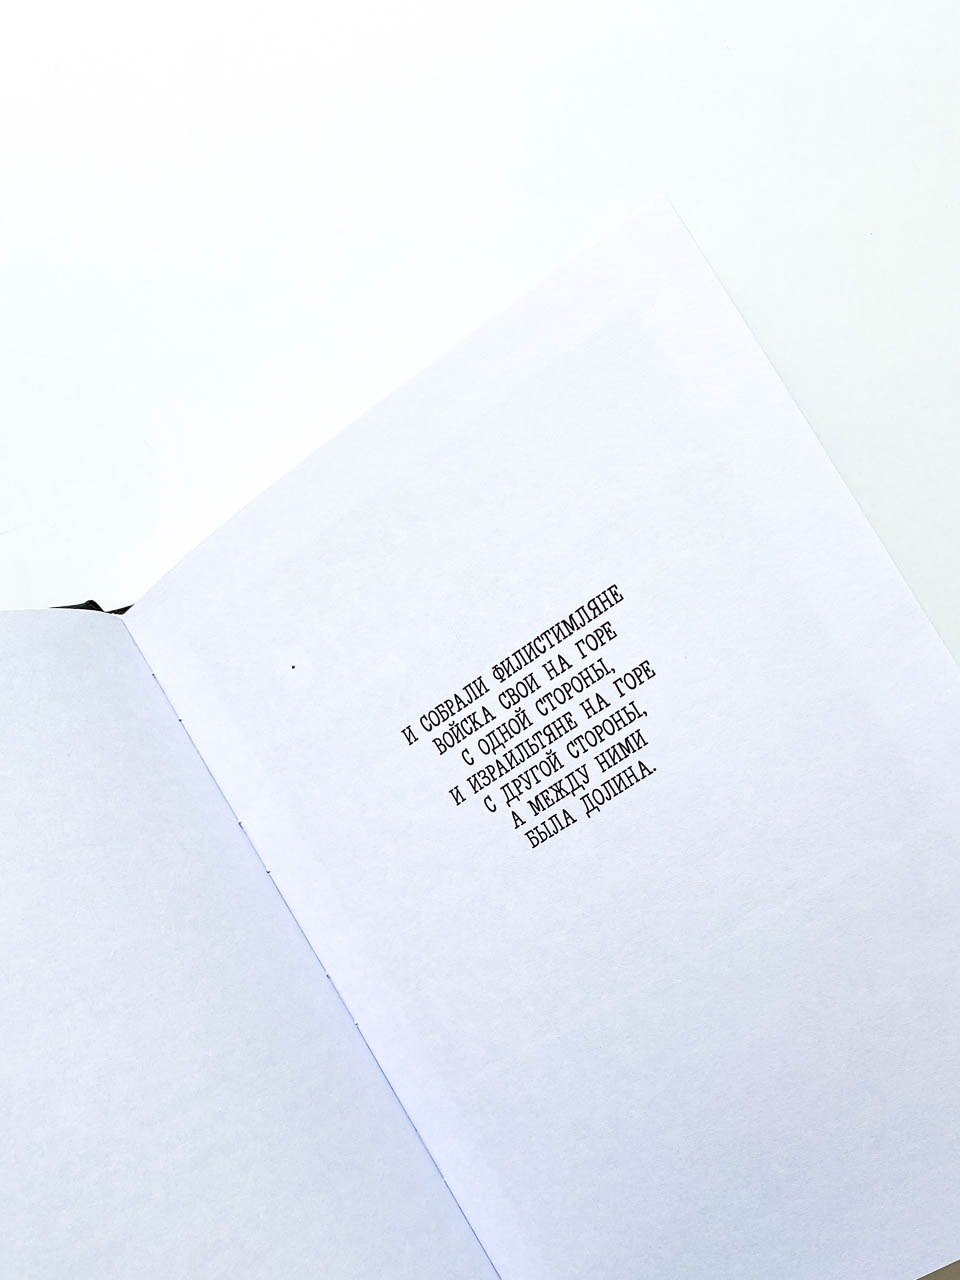 И СОБРАЛИ ФИЛИСТИМЛЯНЕ
ВОЙСКА СВОИ НА ГОРЕ
С ОДНОЙ СТОРОНЫ,
И ИЗРАИЛЬТЯНЕ НА ГОРЕ
С ДРУГОЙ СТОРОНЫ,
А МЕЖДУ НИМИ
БЫЛА ДОЛИНА.